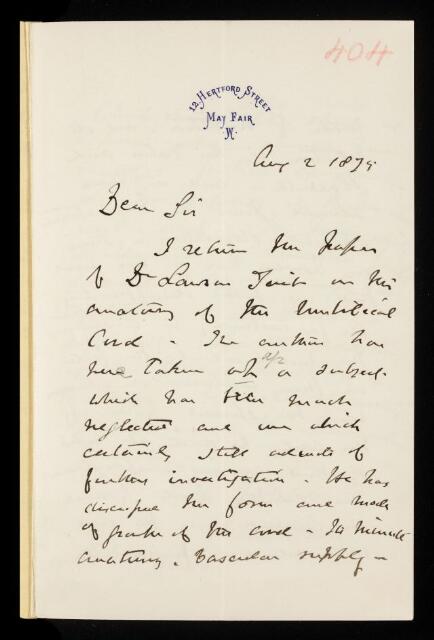 404
12, HERTFORD STREET
MAY FAIR
W.
Aug 2 1875
Dear Sir
I return the paper
of Dr Lawson Tait on the
anatomy of the Umbilical
Cord - The author has
here taken up a subject
which has been much
neglected and one which
certainly still admits of
further investigation. He has
discussed the form and mode
of growth of the cord - Its minute
anatomy, vascular supply -